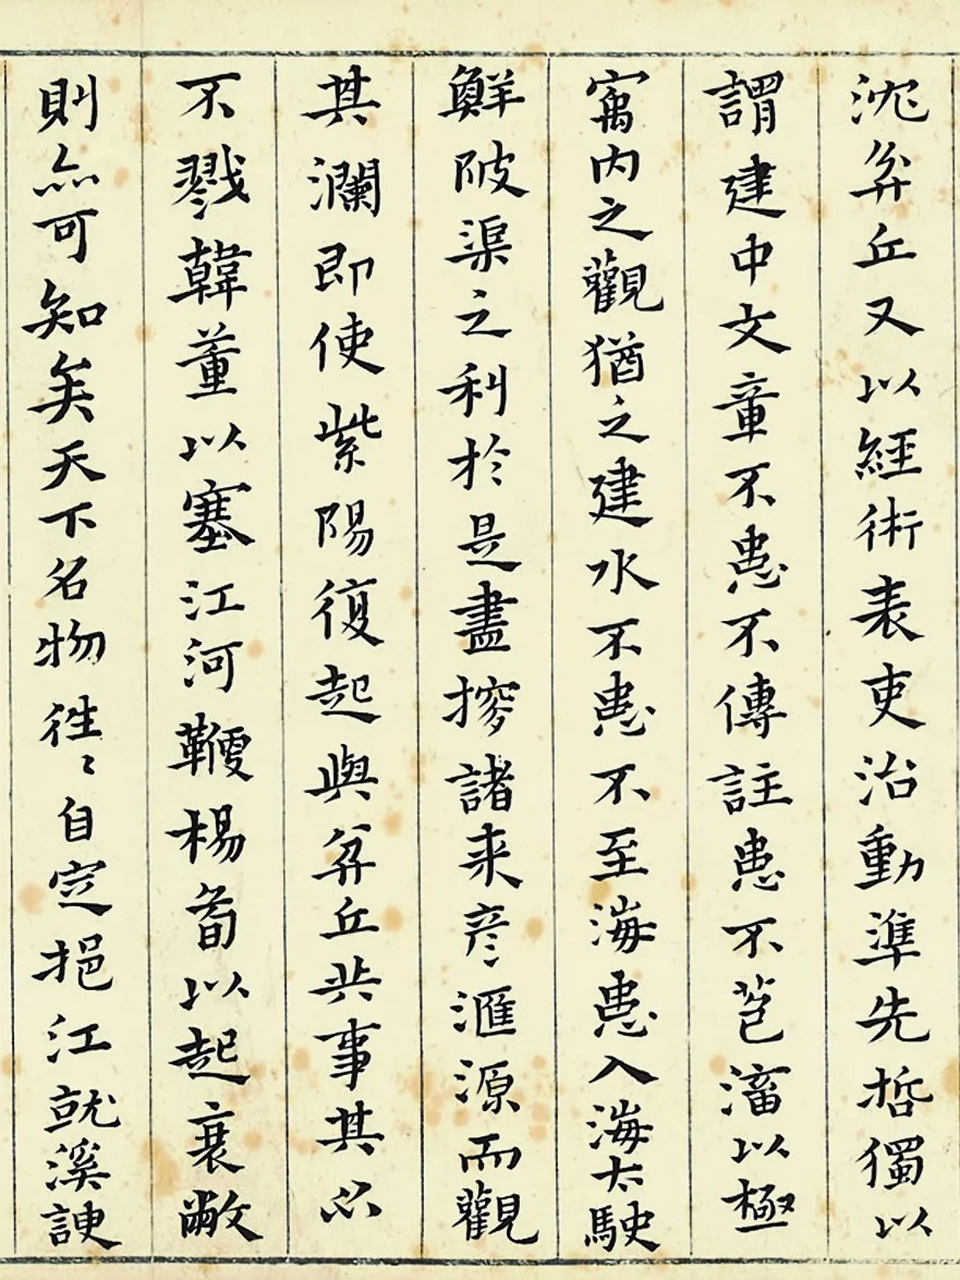 沈弅丘又以經術表吏治動準先哲獨以
謂建中文章不患不傳註患不苞滀以極
㝢内之觀猶之建水不患不至海患入海太駛
鮮陂渠之利於是盡摉諸来彦滙源而觀
其瀾即使紫陽復起與弅丘共事其必
不戮韓董以塞江河鞭楊荀以起衰敝
則亦可知矣天下名物徃〻自定挹江就溪諛